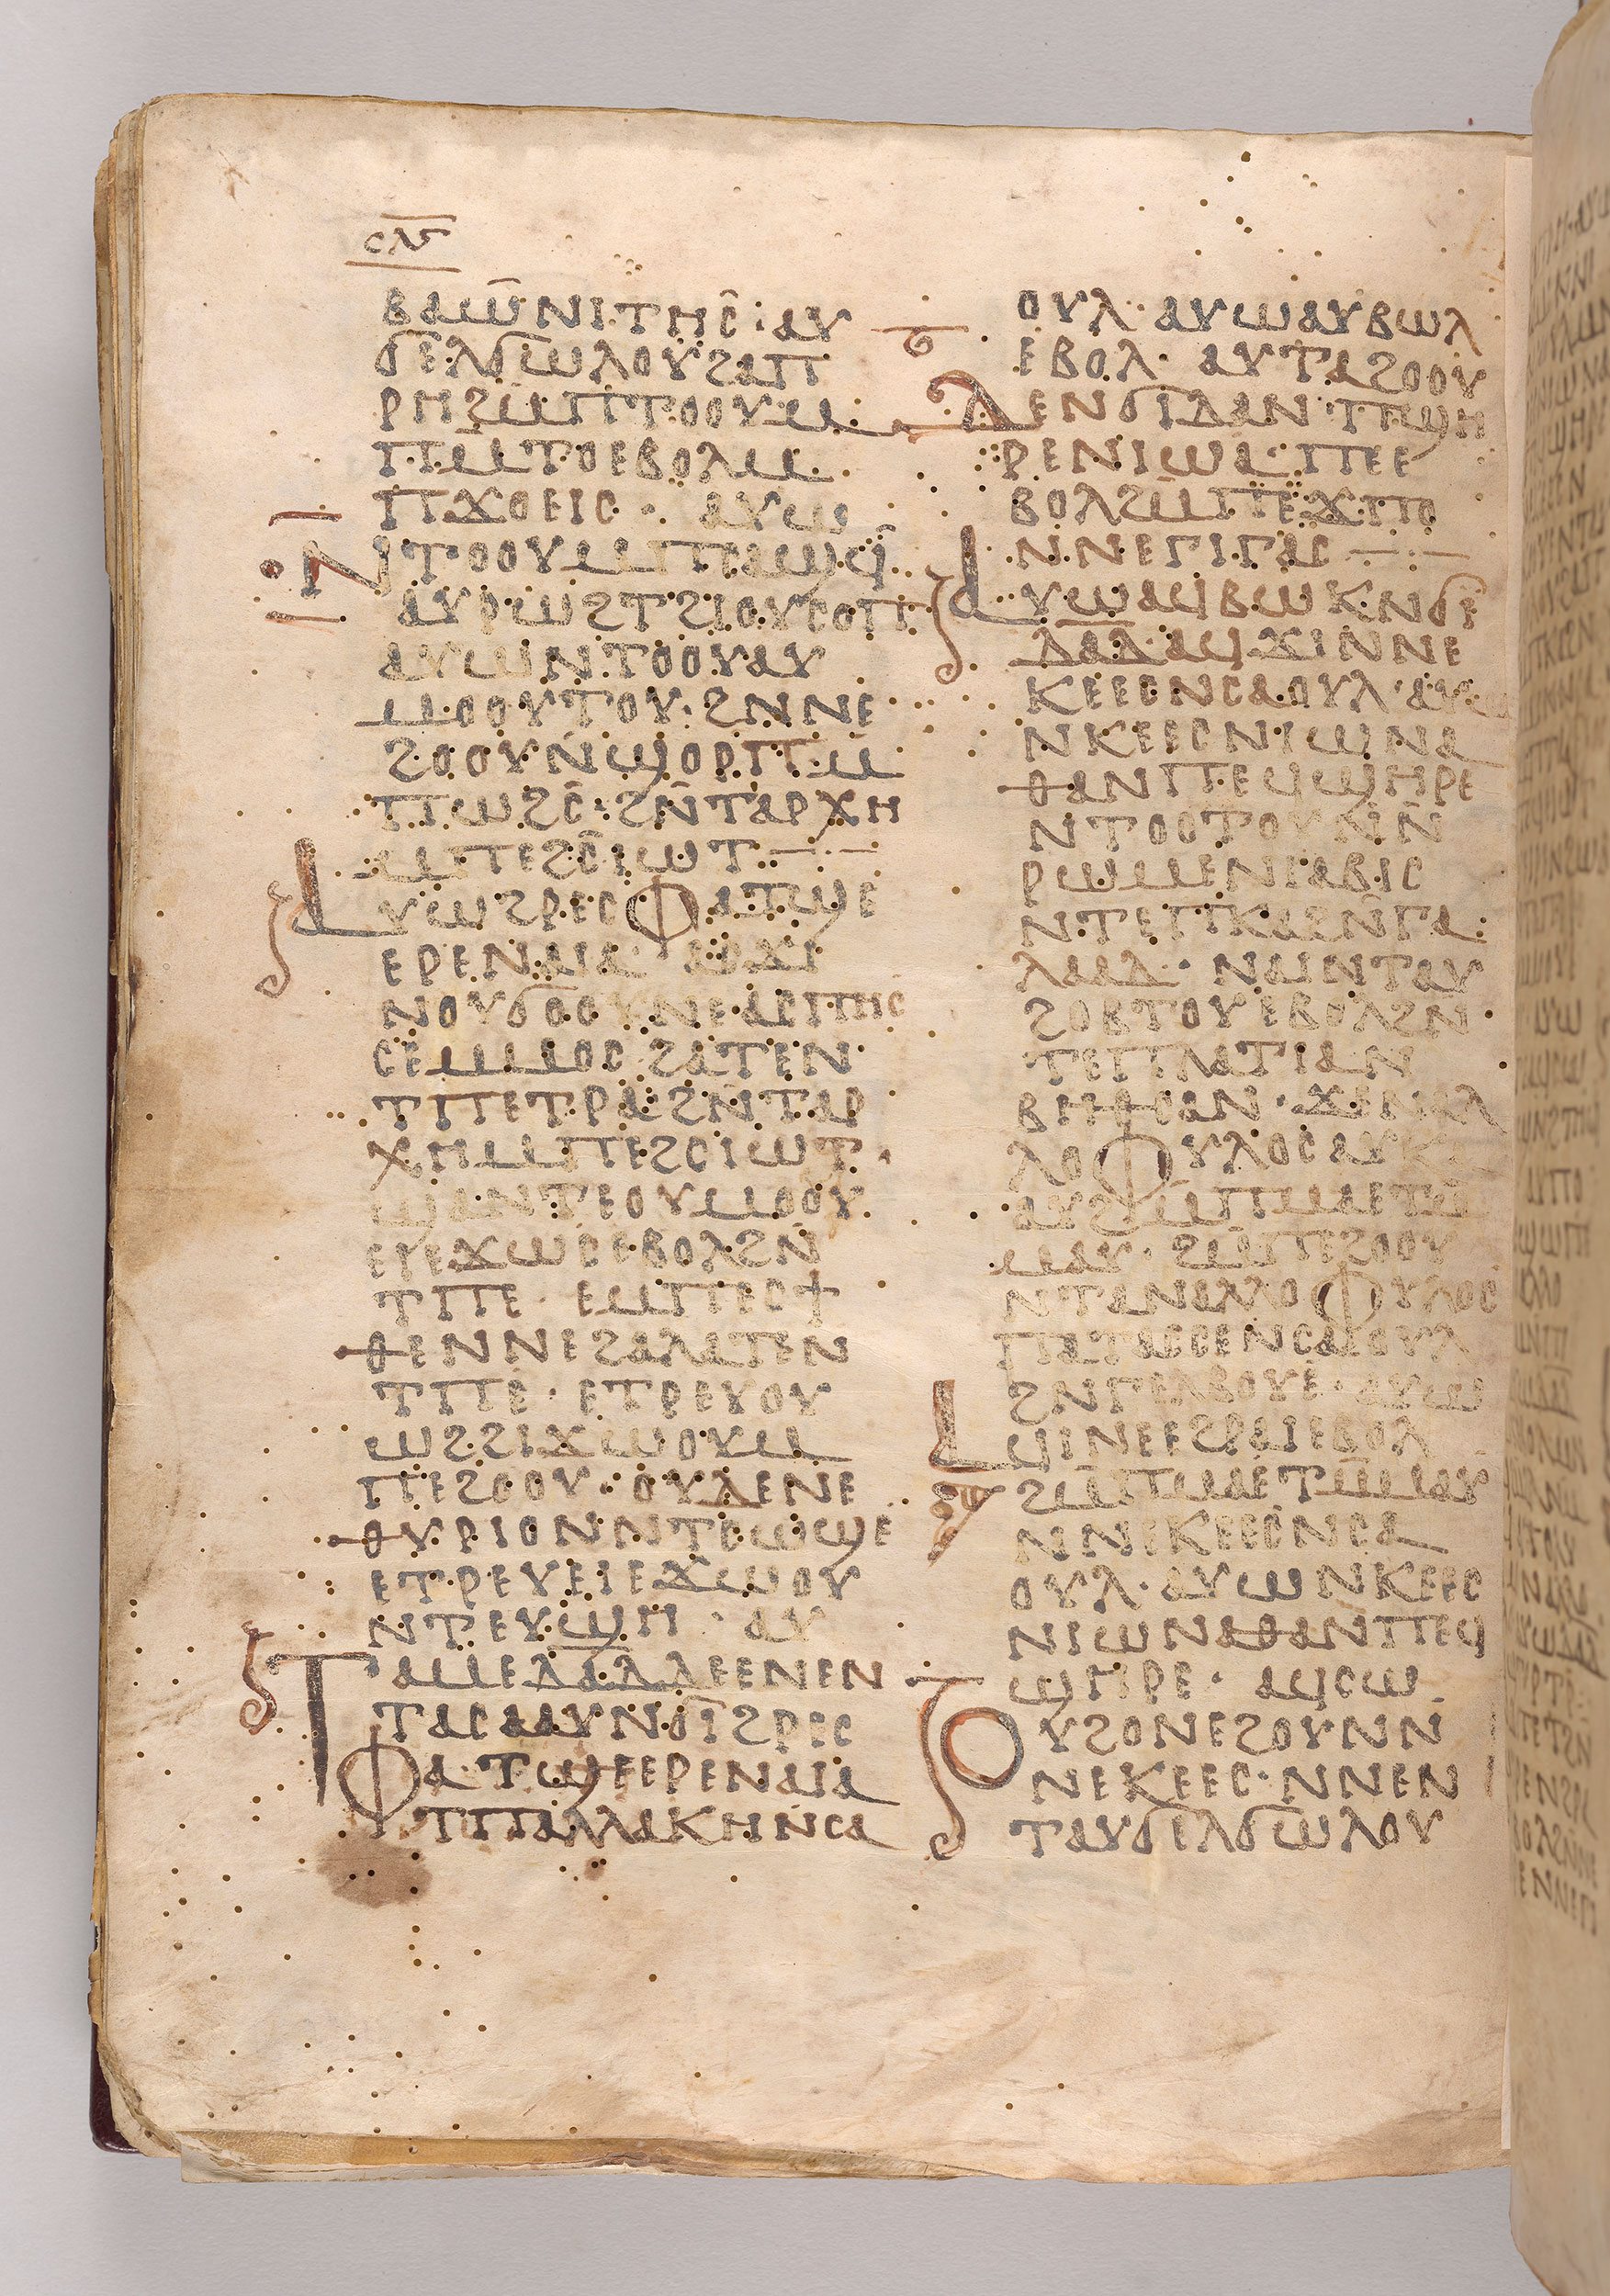 ⲥⲗⲋ
ⲃⲁⲱ̄ⲛⲓⲧⲏⲥ̄· ⲁⲩ
ϭⲉⲗϭⲱⲗⲟⲩϩⲁⲡ
ⲣⲏϩⲙ̄ⲡⲧⲟⲟⲩⲙ
ⲡⲙ̄ⲧⲟⲉⲃⲟⲗⲙ
ⲡϫⲟⲉⲓⲥ· ⲁⲩⲱ
ⲛⲧⲟⲟⲩⲙⲡⲥⲁϣϥ̄
ⲁⲩⲣⲱϩⲧϩⲓⲟⲩⲥⲟⲡ
ⲁⲩⲱⲛⲧⲟⲟⲩⲁⲩ
ⲙⲟⲟⲩⲧⲟⲩ·ϩⲛⲛⲉ
ϩⲟⲟⲩⲛϣⲟⲣⲡ̄ⲙ
ⲡⲱϩⲥ̄·ϩⲛ̄ⲧⲁⲣⲭⲏ
ⲙⲡⲉϩⲥ̄ⲓⲱⲧ ⸺
ⲁⲩⲱϩⲣⲉⲥⲫⲁⲧϣⲉ
ⲉⲣⲉⲛⲁⲓⲁ· ⲁⲥϫⲓ
ⲛⲟⲩϭⲟⲟⲩⲛⲉⲁⲥⲡⲏⲥ
ⲥⲉⲙⲙⲟⲥ ϩⲁⲧⲉⲛ
ⲧⲡⲉⲧⲣⲁϩⲛ̄ⲧⲁⲣ
ⲭⲏⲙⲡⲉϩⲥⲓⲱⲧ·
ϣⲁⲛⲧⲉⲟⲩⲙⲟⲟⲩ
ⲉⲓⲉϫⲱⲥⲉⲃⲟⲗϩⲛ̄
ⲧⲡⲉ· ⲉⲙⲡⲉⲥϯ
ⲑⲉⲛⲛⲉϩⲁⲗⲁⲧⲉⲛ
ⲧⲡⲉ· ⲉⲧⲣⲉⲩⲟⲩ
ⲱϩϩⲓϫⲱⲟⲩⲙ
ⲡⲉϩⲟⲟⲩ·ⲟⲩⲇⲉⲛⲉ
ⲑⲩⲣⲓⲟⲛⲛⲧⲥⲱϣⲉ
ⲉⲧⲣⲉⲩⲉⲓⲉϫⲱⲟⲩ
ⲛⲧⲉⲩϣⲏ· ⲁⲩ
ⲧⲁⲙⲉⲇⲁ̄ⲇⲇⲉⲉⲛⲉⲛ
ⲧⲁⲥⲁⲁⲩⲛϭⲓϩⲣⲉⲥ
ⲫⲁⲧϣⲉⲉⲣⲉⲛⲁⲓⲁ
ⲧⲡⲁⲗⲗⲁⲕⲏⲛⲥⲁ
ⲟⲩⲗ· ⲁⲩⲱⲁⲩⲃⲱⲗ
ⲉⲃⲟⲗ· ⲁⲩⲧⲁϩⲟⲟⲩ
ⲇⲉⲛϭⲓⲇⲁⲛ·ⲡϣⲏ
ⲣⲉⲛⲓⲱⲁ·ⲡⲉⲉ
ⲃⲟⲗϩⲙ̄ⲡⲉϫⲡⲟ
ⲛⲛⲉⲅⲓⲅⲁⲥ ⸺
ⲁⲩⲱⲁϥⲃⲱⲕⲛϭⲓ
ⲇⲁ̄ⲇ·ⲁϥϫⲓⲛⲛⲉ
ⲕⲉⲉⲥⲛⲥⲁⲟⲩⲗ·ⲁⲩⲱ
ⲛⲕⲉⲉⲥⲛⲓⲱⲛⲁ
ⲑⲁⲛⲡⲉϥϣⲏⲣⲉ
ⲛⲧⲟⲟⲧⲟⲩⲛ̄ⲛ̄
ⲣⲱⲙⲉⲛⲓⲁⲃⲓⲥ
ⲛⲧⲉⲡⲕⲁϩⲛ̄ⲅⲁ
ⲗⲁⲁⲇ· ⲛⲁⲓⲛⲧⲁⲩ
ϩⲟⲃⲧⲟⲩⲉⲃⲟⲗϩⲛ̄
ⲧⲉⲡⲗⲁⲧⲓⲁⲛ
ⲃⲏⲑⲥⲁⲛ· ϫⲉⲛⲁⲗ
ⲗⲟⲫⲩⲗⲟⲥⲁⲩⲕ
ⲁⲩϩⲙ̄ⲡⲙⲁⲉⲧⲙ̄
ⲙⲁⲩ· ϩⲙ̄ⲡⲉϩⲟⲟⲩ
ⲛⲧⲁⲛⲁⲗⲗⲟⲫⲩⲗⲟⲥ
ⲡⲁⲧⲁⲥⲥⲉⲛⲥⲁⲟⲩⲗ
ϩⲛⲅⲉⲗⲃⲟⲩⲉ· ⲁⲩⲱ
ⲁϥⲓⲛⲉⲉϩⲣⲁⲓⲉⲃⲟⲗ
ϩⲙ̄ⲡⲙⲁⲉⲧⲙ̄ⲙⲁⲩ
ⲛⲛⲉⲕⲉⲉⲥⲛⲥⲁ
ⲟⲩⲗ·ⲁⲩⲱⲛⲕⲉⲉⲥ
ⲛⲓⲱⲛⲁⲑⲁⲛⲡⲉϥ
ϣⲏⲣⲉ· ⲁϥⲥⲱ
ⲟⲩϩⲟⲛⲉϩⲟⲩⲛⲛ
ⲛⲉⲕⲉⲉⲥ·ⲛⲛⲉⲛ
ⲧⲁⲩϭⲉⲗϭⲱⲗⲟⲩ